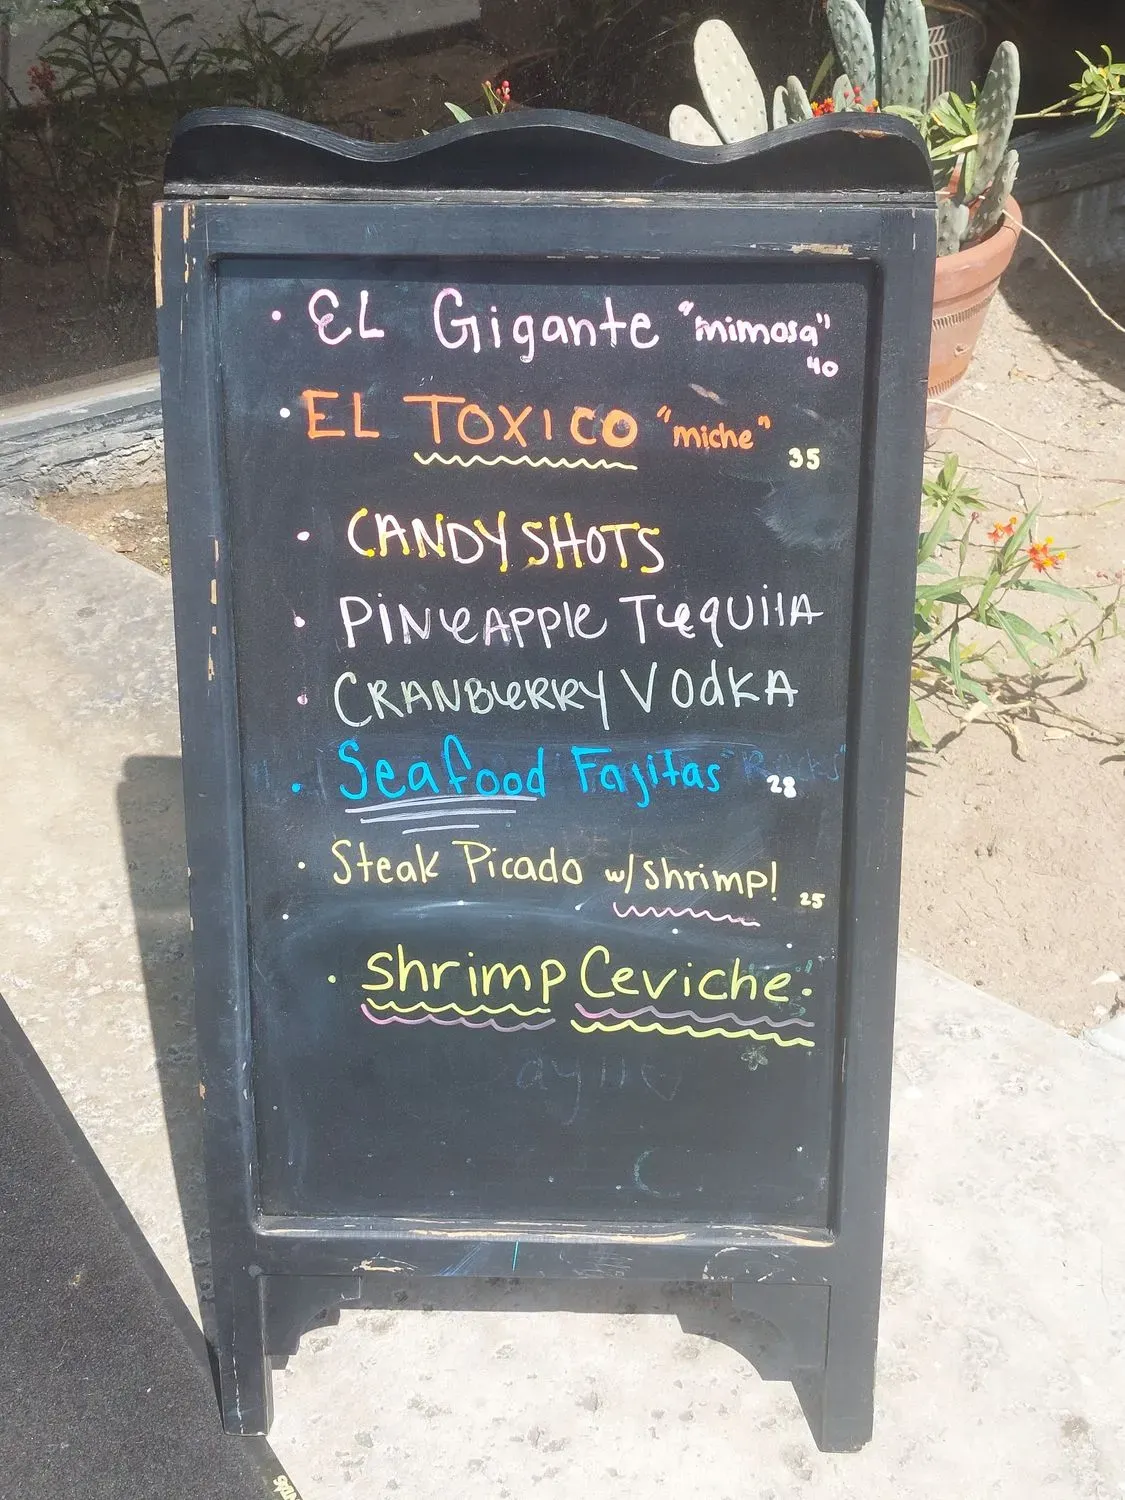 • EL Gigante "mimosa"
40
• EL TOXICO "miche"
35
• CANDY SHOTS
• PINEAPPLE TEQUILA
• CRANBERRY VODKA
• Seafood Fajitas
28
• Steak Picado w/ shrimp!
25
• shrimp Ceviche.